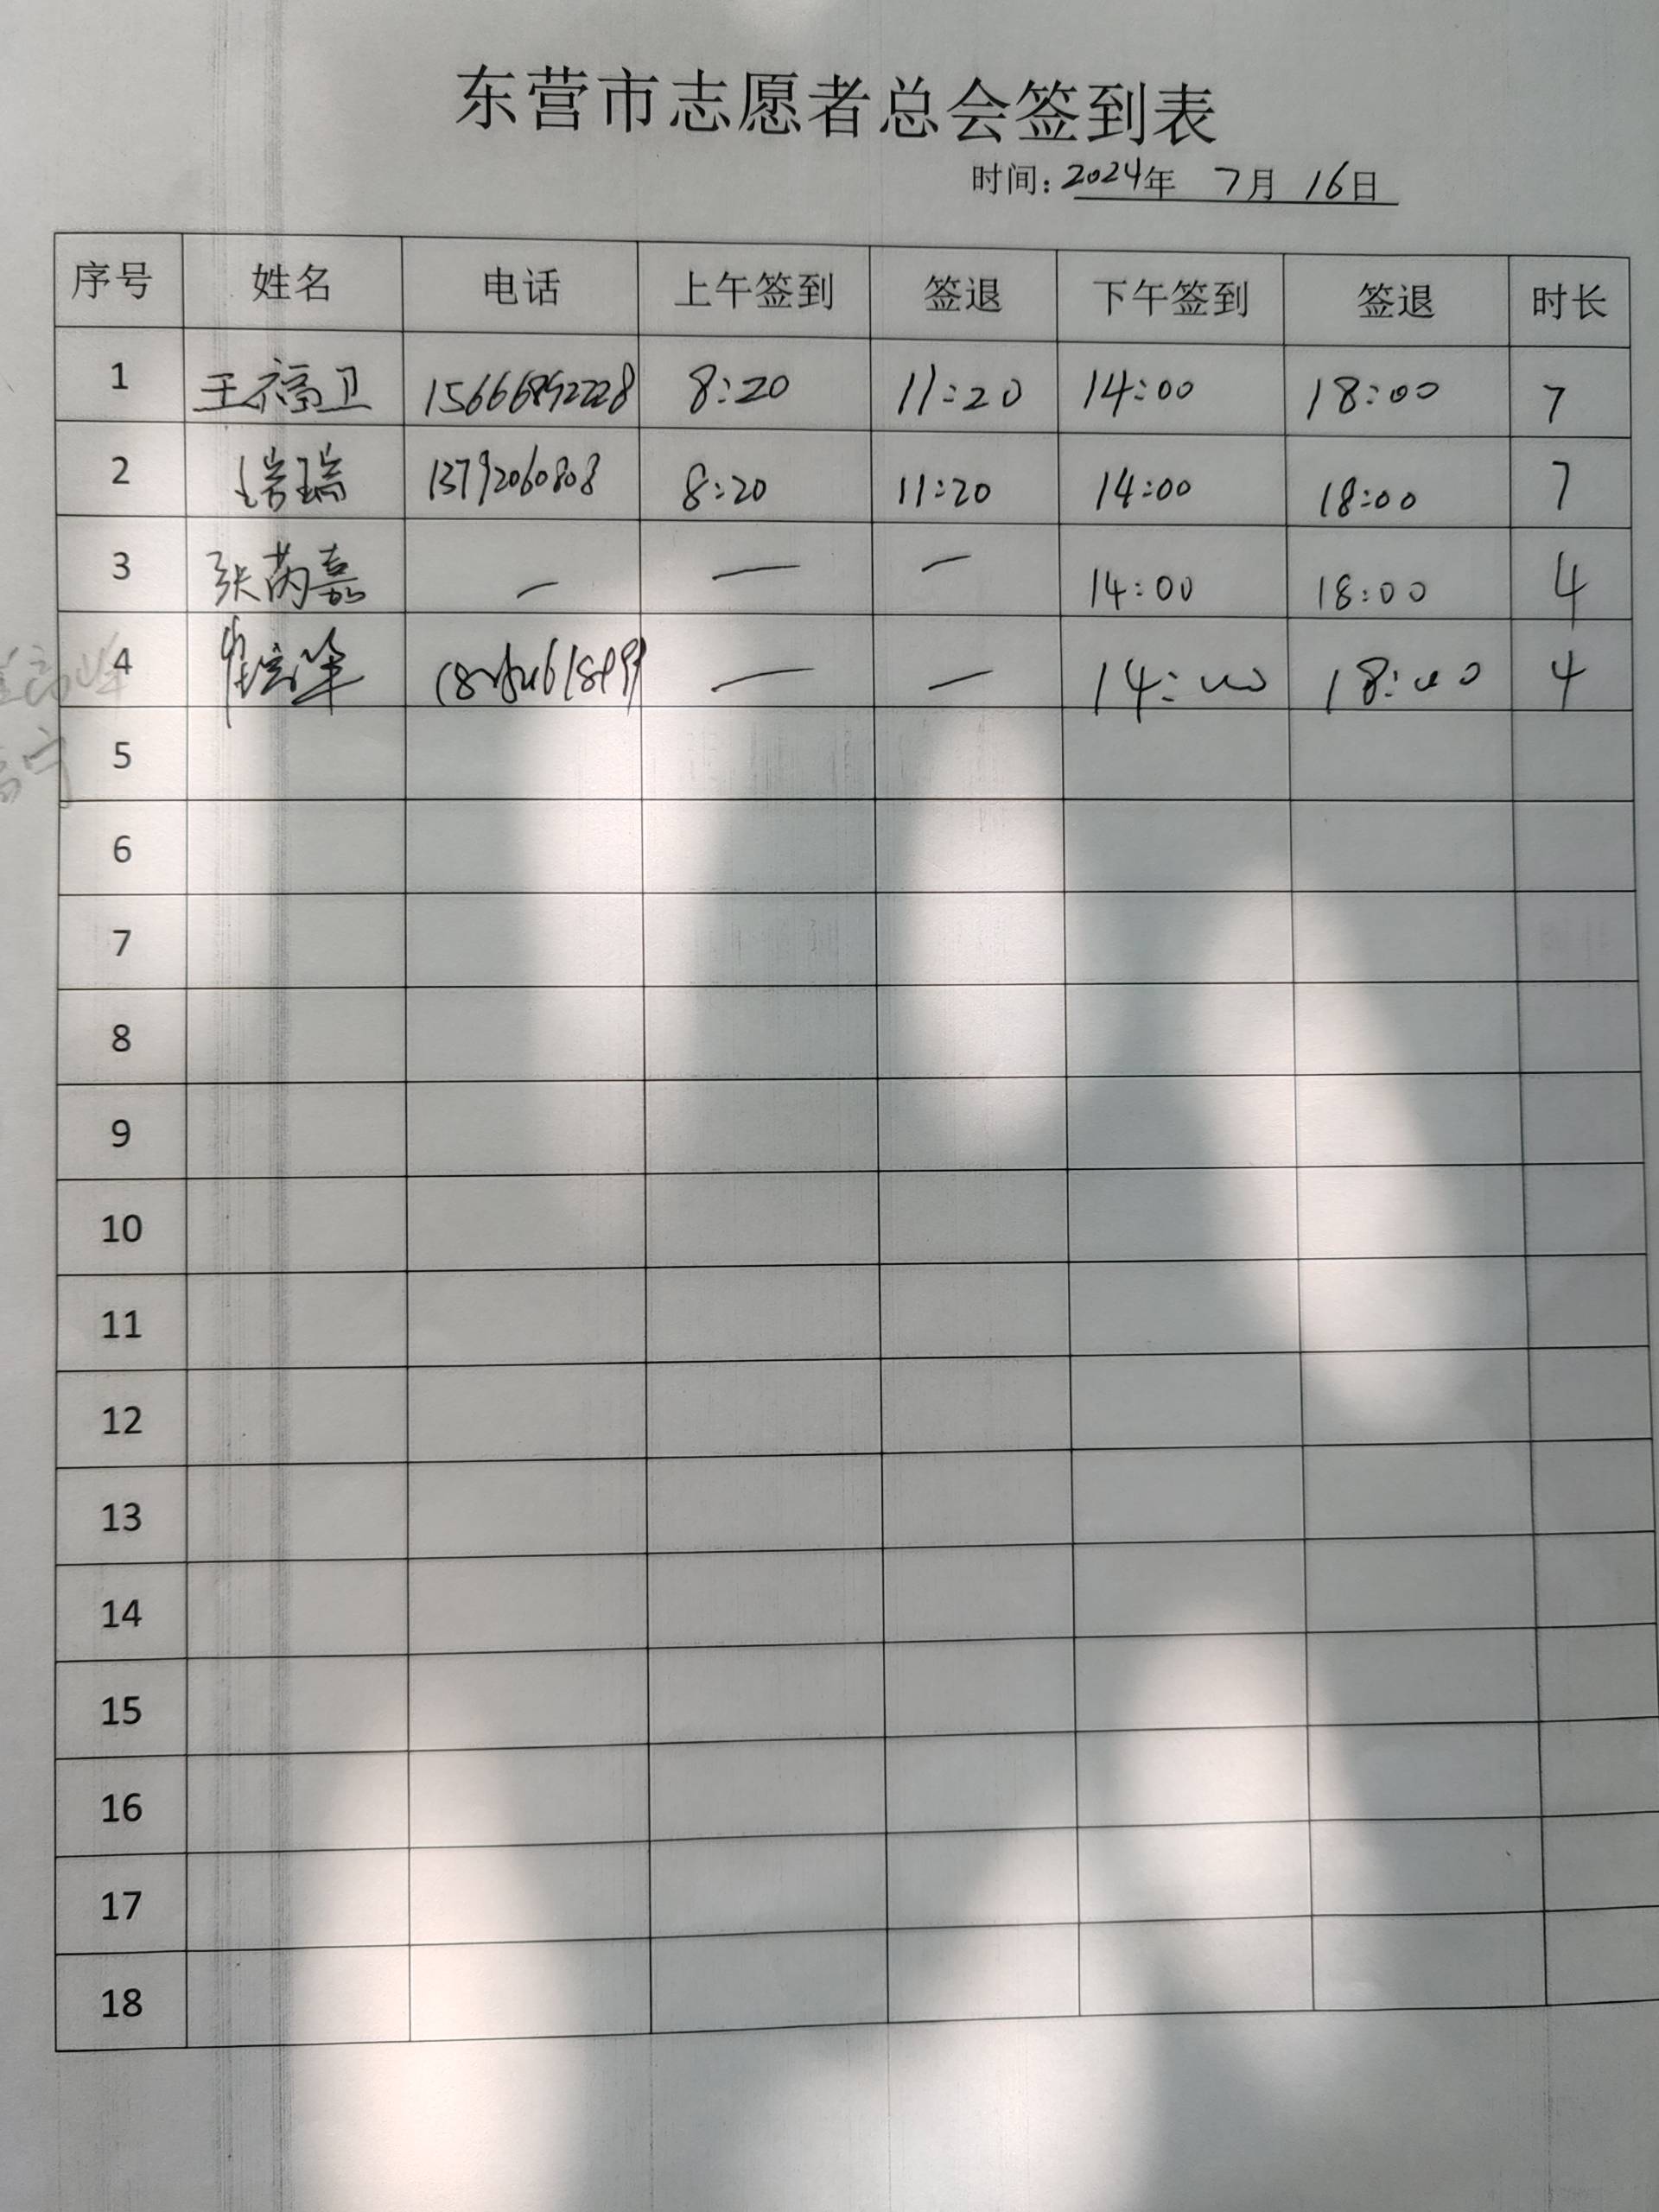 东营市志愿者总会签到表
时间:2024年 7月 16日
序号 姓名 电话 上午签到 签退 下午签到 签退 时长
1 王福卫 15666892228 8:20 11:20 14:00 18:00 7
2 瑞 13792060808 8:20 11:20 14:00 18:00 7
3 张芮嘉 — — — 14:00 18:00 4
4 — — 14:00 18:00 4
5
6
7
8
9
10
11
12
13
14
15
16
17
18